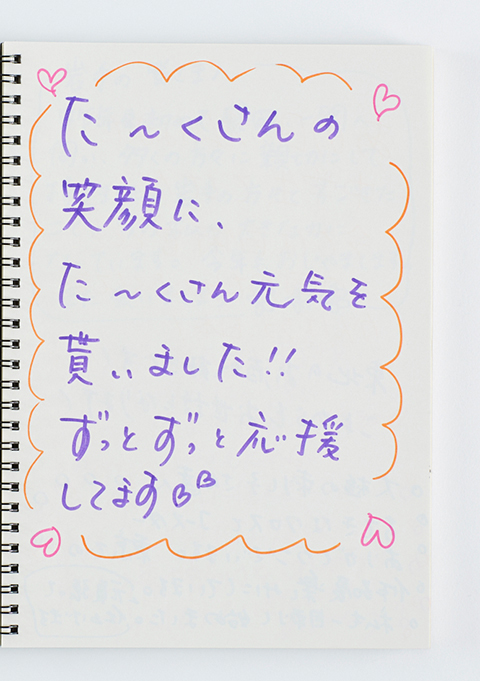 た〜くさんの
笑顔に、
た〜くさん元気を
貰いました!!
ずっとずっと応援
してます